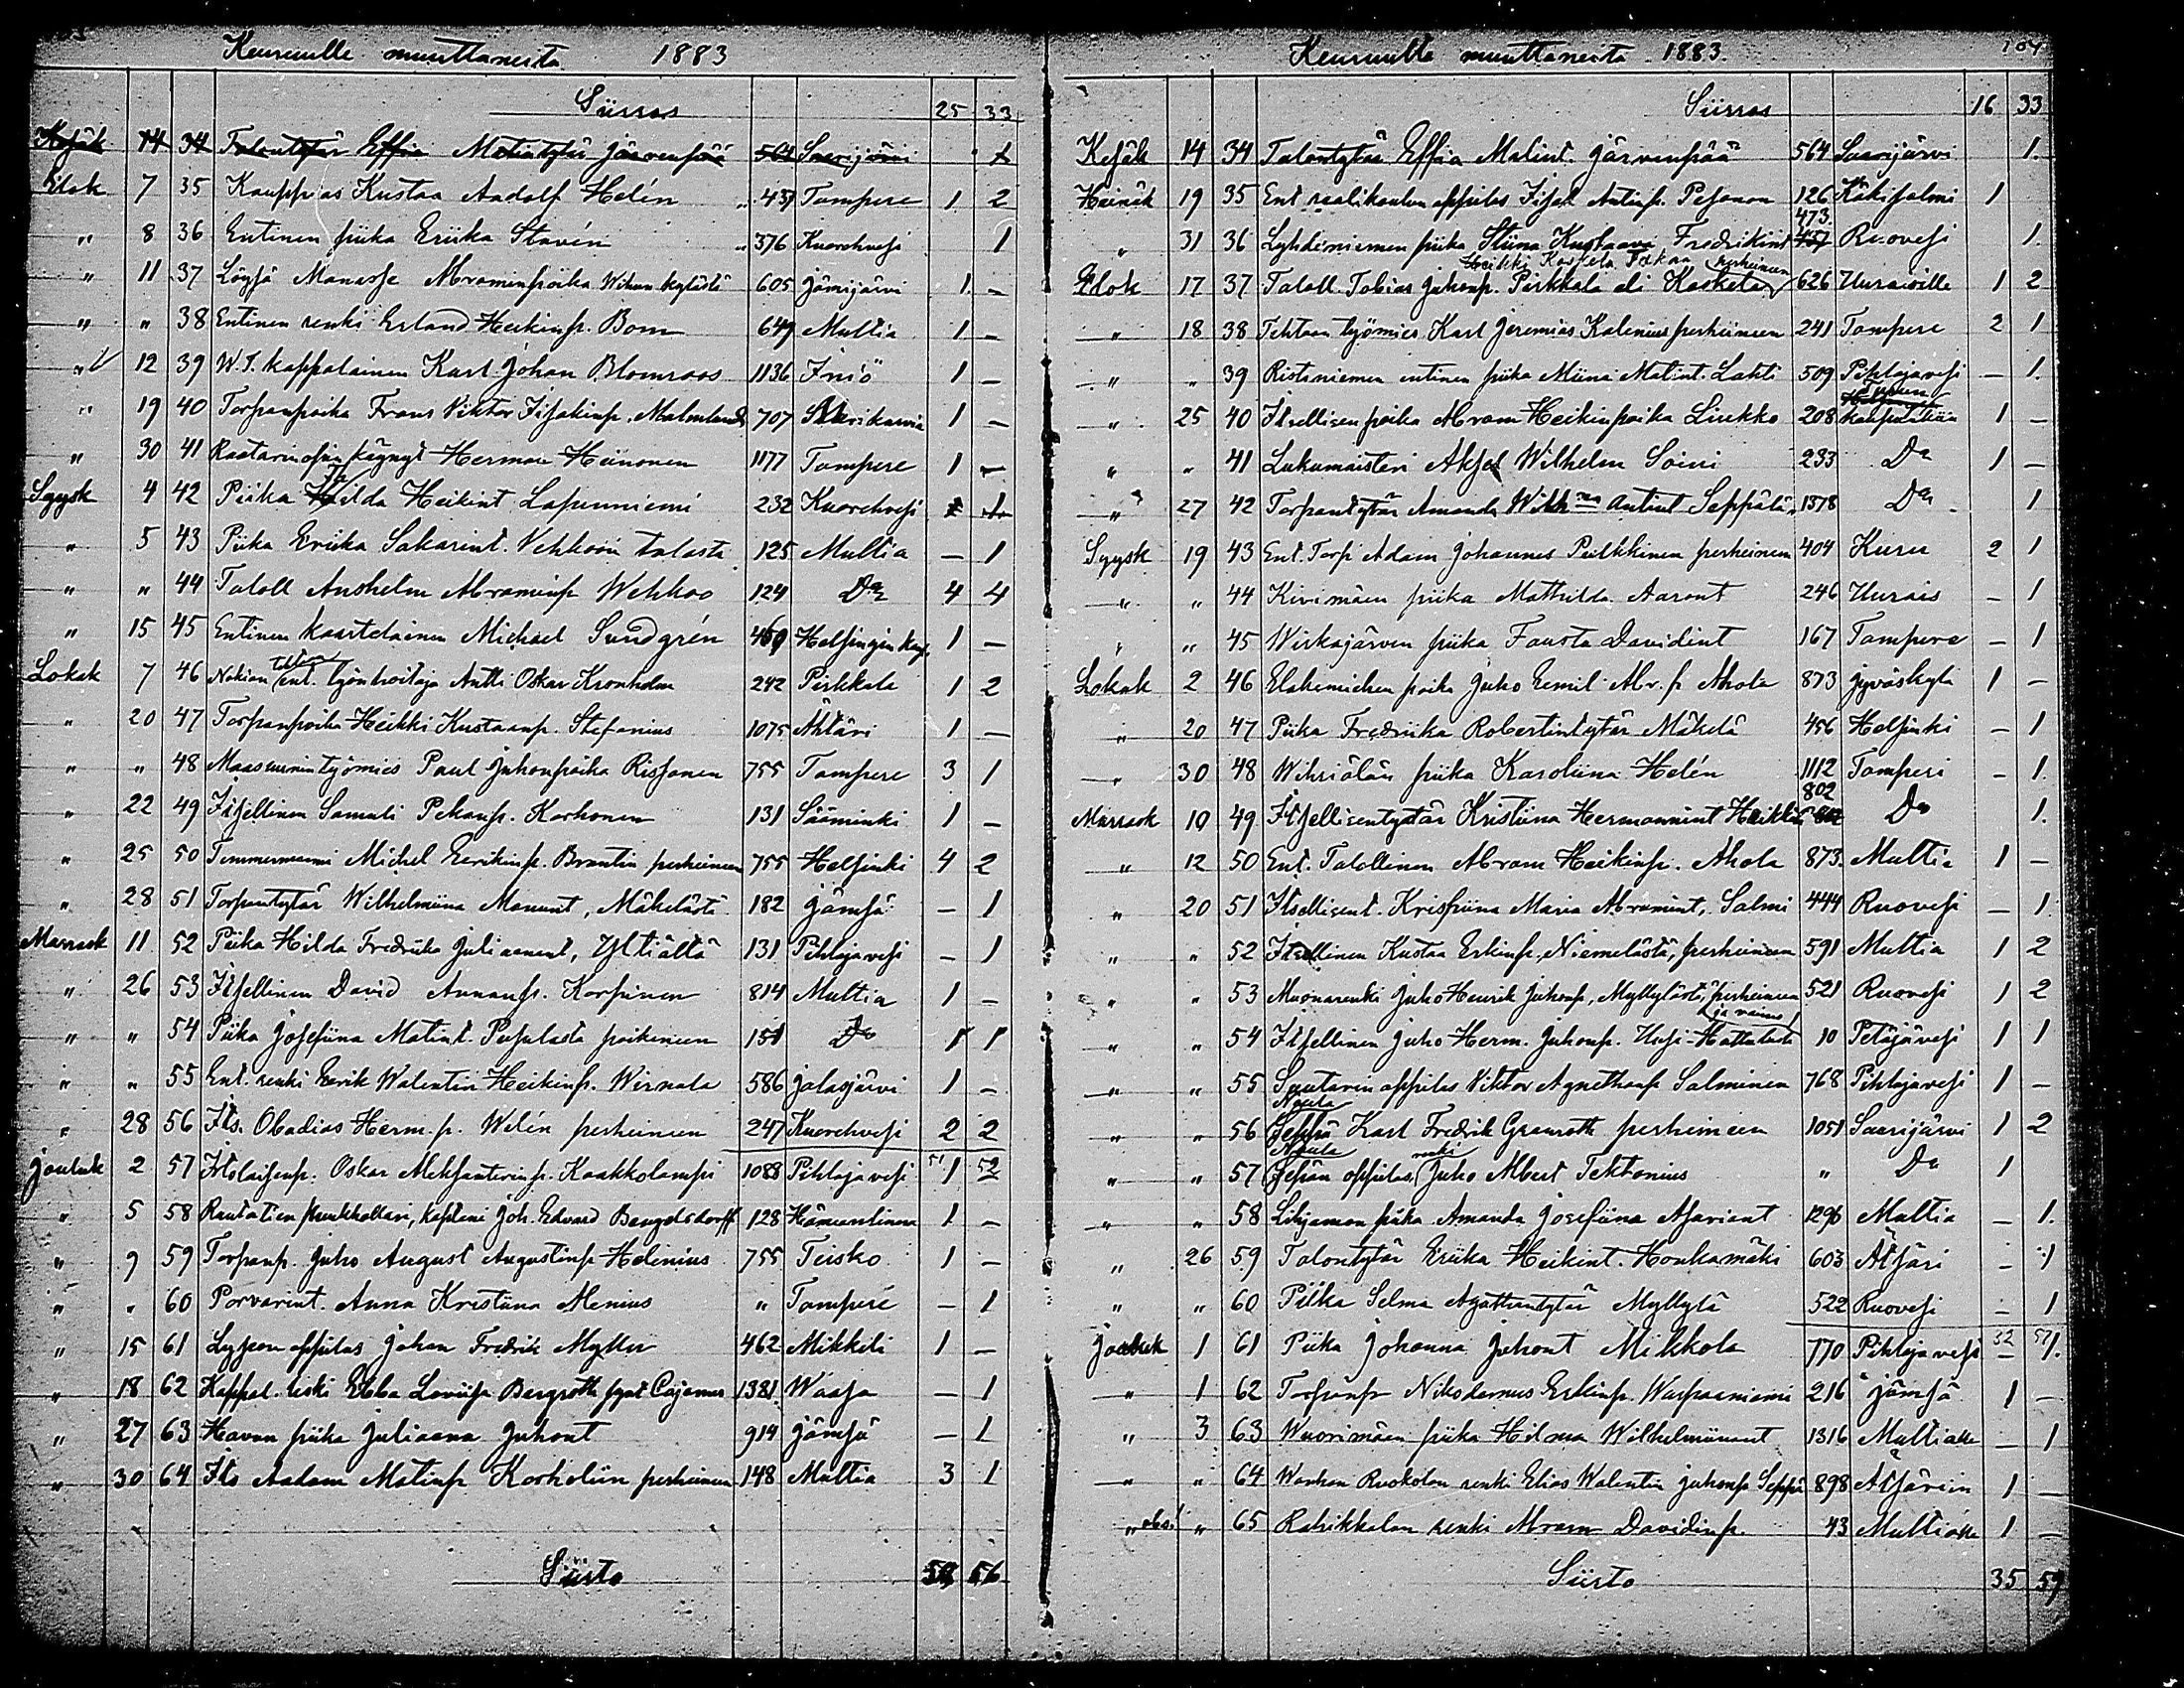 Keuruulle muuttaneita 1883
Siirros 25 33
Kesäk 14 34 Talontytär Effia Matintytär Järvenpää 564 Saarijärvi 1
Elok 7 35 Kauppias Kustaa Aadolf Helén 437 Tampere 1 2
" 8 36 Entinen piika Eriika Stavén 376 Kuorehvesi 1
" 11 37 Löysä Manasse Abraminpoika Wihun kylästä 605 Jämijärvi 1 –
" " 38 Entinen renki Erland Heikinp. Bom 649 Multia 1 –
" 12 39 W.T. kappalainen Karl Johan Blomroos 1136 Iniö 1 –
" 19 40 Torpanpoika Frans Viktor Iisakinp. Malmlund 707 1 –
" 30 41 Raatarinopin käynyt Herman Heinonen 1177 Tampere 1 –
Syysk 4 42 Piika Hilda Heikint Lapinniemi 232 Kuorehvesi 1
" 5 43 Piika Eriika Sakarint. Vehkoon talosta 125 Multia – 1
" " 44 Taloll Anshelm Abraminp Wehkoo 124 Do 4 4
" 15 45 Entinen kaartelainen Michael Sundgrén 469 Helsingin kaup. 1 –
Lokak 7 46 Nokian tehtaan ent. työnhoitaja Antti Oskar Kronholm 242 Pirkkala 1 2
" 20 47 Torpanpoika Heikki Kustaanp. Stefanius 1075 Ähtäri 1 –
" " 48 Maasuunin työmies Paul Juhonpoika Rissanen 755 Tampere 3 1
" 22 49 Itsellinen Samuli Pekanp. Korhonen 131 Sääminki 1 –
" 25 50 Timmermanni Michel Eerikinp. Brantin perheineen 755 Helsinki 4 2
" 28 51 Torpantytär Wilhelmiina Manunt, Mäkelästä 182 Jämsä – 1
Marrask 11 52 Piika Hilda Fredrika Juliaanant, Yltiältä 131 Pihlajavesi – 1
" 26 53 Itsellinen David Annanp. Korpinen 814 Multia 1 –
" " 54 Piika Josefiina Matint. Pupulasta poikineen 151 Do 1 1
" " 55 Ent. renki Eerik Walentin Heikinp. Wirnala 586 Jalasjärvi 1 –
" 28 56 Its. Obadias Herm. p. Welén perheineen 247 Kuorehvesi 2 2
Jouluk 2 57 Oskar Aleksanterinp. Kaakkolampi 1088 Pihlajavesi 51 1 52
" 5 58 Rautatien puukhollari, kapteni Joh. Edvard Bengelsdorff 128 Hämeenlinna 1 –
" 9 59 Torpanp. Juho August Augustinp Helenius 755 Teisko 1 –
" " 60 Porvarint. Anna Kristiina Alenius " Tampere – 1
" 15 61 Lyseon oppilas Johan Fredrik Myller 462 Mikkeli 1 –
" 18 62 Kappal. leski Ebba Loviisa Bergroth synt Cajanus 1381 Waasa – 1
" 27 63 Havun piika Juliaana Juhont 914 Jämsä – 1
" 30 64 Its Aadam Matinp Korholiin perheineen 148 Multia 3 1
Siirto 56
Keuruulta muuttaneita 1883.
Siirros 16 33
Kesäk 14 34 Talontytär Effia Matint. Järvenpää 564 Saarijärvi 1.
Heinäk 19 35 Ent realikoulun oppilas Iisak Antinp. Pesonen 126 Käkisalmi 1
473
" 31 36 Lyhdinniemen piika Stiina Kustaava Fredrikint 457 Ruovesi 1.
Heikki Kosketa perheineen
Elok 17 37 Taloll. Tobias Juhonp. Pirkkala eli Kosketa 626 Uuraisille 1 2
" 18 38 Tehtaan työmies Karl Jeremias Kalenius perheineen 241 Tampere 2 1
" " 39 Ristiniemen entinen piika Miina Matint. Lahti 509 Pihlajavesi – 1.
" 25 40 Itsellisenpoika Abram Heikinpoika Linkko 208 kaupunkiin 1 –
" " 41 Lukumaisteri Aksel Wilhelm Soini 233 Do 1 –
" 27 42 Torpantytär Amanda Wilh:na Antint Seppälä 1378 Do 1
Syysk 19 43 Ent. Torp Adam Johannes Pulkkinen perheineen 404 Kuru 2 1
" " 44 Kivimäen piika Mathilda Aaront 246 Uurais – 1
" " 45 Wirkajärven piika Fausta Davidint 167 Tampere – 1
Lokak 2 46 Elakemiehen poika Juho Eemil Abr. p Ahola 873 Jyväskylä 1 –
" 20 47 Piika Fredriika Robertintytär Mäkelä 456 Helsinki – 1
" 30 48 Wihriälän piika Karoliina Helén 1112 Tamperi – 1.
802
Marrask 10 49 Itsellisentytär Kristiina Hermannint Do 1.
" 12 50 Ent. Talollinen Abram Heikinp. Ahola 873 Multia 1 –
" 20 51 Itsellisent. Krispiina Maria Abramint, Salmi 444 Ruovesi – 1.
" " 52 Itsellinen Kustaa Erkinp, Niemelästä, perheineen 591 Multia 1 2
" " 53 Muonarenki Juho Henrik Juhonp, Myllylästä, perheineen 521 Ruovesi 1 2
ja vaimo
" " 54 Itsellinen Juho Herm. Juhonp. Uusi-Hattulasta 10 Petäjävesi 1 1
" " 55 Suutarin oppilas Viktor Agnethanp Salminen 768 Pihlajavesi 1 –
Naula
" " 56 Seppä Karl Fredrik Granroth perheineen 1051 Saarijärvi 1 2
Naula renki
" " 57 Sepän oppilas, Juho Albert Tektonius " Do 1
" " 58 Lihjamon piika Amanda Josefiina Asariant 1296 Multia – 1.
" 26 59 Talontytär Eriika Heikint. Honkamäki 603 Ätsäri – 1
" " 60 Piika Selma Agathantytär Myllylä 522 Ruovesi – 1
Jouluk 1 61 Piika Johanna Juhont Mikkola 770 Pihlajavesi 32 – 57 1.
" 1 62 Torpanp Nikodemus Erkinp. Warpaaniemi 216 Jämsä 1 –
" 3 63 Wuorimäen piika Hilma Wilhelmiinant 1316 Multialle – 1
" " 64 Wanhan Ruokolan renki Elias Walentin Juhonp Seppä 898 Ätsäriin 1 –
" obs! " 65 Rahikkalan renki Abram Davidinp. 43 Multialle 1 –
Siirto 35 59